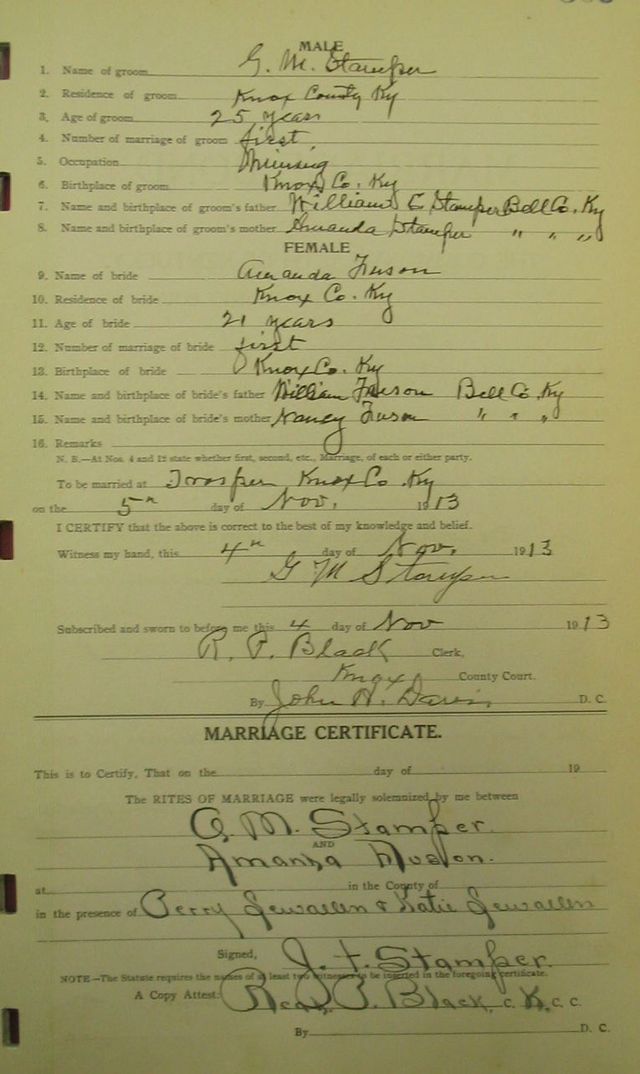 MALE
1. Name of groom G. M. Stamper
2. Residence of groom Knox County Ky
3. Age of groom 25 years
4. Number of marriage of groom first
5. Occupation Mining
6. Birthplace of groom Knox Co. Ky
7. Name and birthplace of groom's father William Stamper Bell Co. Ky
8. Name and birthplace of groom's mother Amanda Stamper " " "
FEMALE
9. Name of bride Amanda Fuson
10. Residence of bride Knox Co. Ky
11. Age of bride 21 years
12. Number of marriage of bride first
13. Birthplace of bride Knox Co. Ky
14. Name and birthplace of bride's father William Fuson Bell Co. Ky
15. Name and birthplace of bride's mother Nancy Fuson " " "
16. Remarks
N. B.—At Nos. 4 and 12 state whether first, second, etc., Marriage, of each or either party.
To be married at Trosper Knox Co. Ky
on the 5th day of Nov. 1913
I CERTIFY that the above is correct to the best of my knowledge and belief.
Witness my hand, this 4th day of Nov. 1913
G M Stamper
Subscribed and sworn to before me this 4 day of Nov 1913
R. P. Black Clerk,
Knox County Court.
By John H. Davis, D. C.
MARRIAGE CERTIFICATE.
This is to Certify, That on the day of 19
The RITES OF MARRIAGE were legally solemnized by me between
G. M. Stamper.
AND
Amanda Fuson.
at in the County of
in the presence of Perry Lewallen & Katie Lewallen
Signed, J. F. Stamper.
NOTE—The Statute requires the names of at least two witnesses to be inserted in the foregoing certificate.
A Copy Attest: P. Black, C. K. C. C.
By D. C.